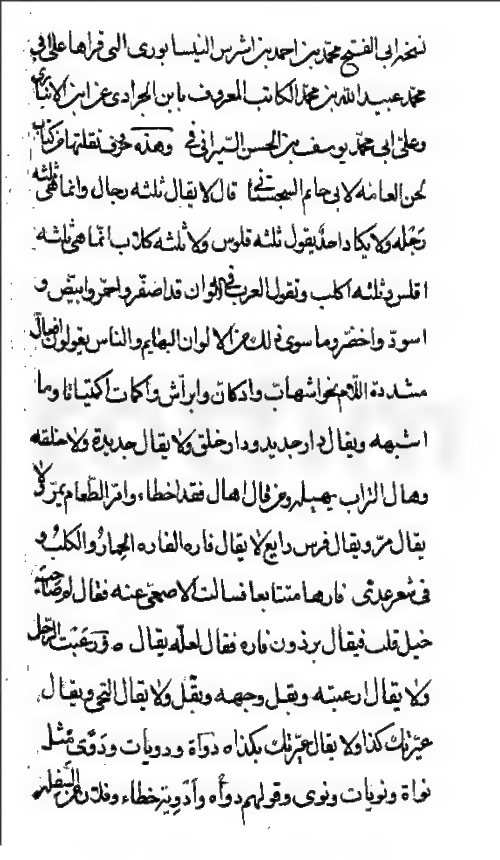 نسخه ابى الفتح محمد بن احمد بن اشرس النيسابورى التى قراها على ابى
محمد عبيد الله بن محمد الكاتب المعروف بابن الجرادى عن ابن الانبارى
وعلى ابى محمد يوسف بن الحسن السيرافى وهذه حروف نقلتها من كتاب
لحن العامه لابى حاتم السجستانى قال لا يقال ثلثه رجال وانما هى ثلثه
رجله ولا يكاد احد يقول ثلثه فلوس ولا ثلثه كلاب انما هى ثلثه
افلس وثلثه اكلب وتقول العرب فى الالوان قد اصفر واحمر وابيض و
اسود واخضر وما سوى ذلك من الالوان البهايم والناس يقولون افعال
مشددة اللام نحو اشهاب وادكان وابراش واكمات اكتياتا وما
اشبهه ويقال دار جديد ودار خلق ولا يقال جديدة ولا خلقه
وهال التراب يهيله ومن قال اهال فقد اخطاء وامر الطعام يمر ولا
يقال مر ويقال فرس رايع لا يقال فاره الفاره الحمار والكلب و
فى شعر عدى فارها متتابعا فسالت الاصمعى عنه فقال لم يكن صاحب
خيل قلت فيقال برذون فاره فقال لعله يقال ورعبت الرجل
ولا يقال ارعبته وبقل وجهه وبقل ولا يقال التحى ويقال
عيرتك كذا ولا يقال عيرتك بكذا دواة ودويات ودوى مثل
نواة ونويات ونوى وقولهم دواه وادوية خطاء وفلان من السفله